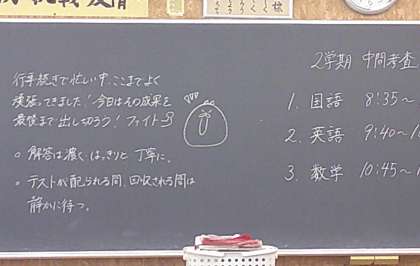 行事続きで忙しい中、ここまでよく
頑張ってきました!今日はその成果を
最後まで出し切ろう!ファイト
○ 解答は濃く、はっきりと丁寧に。
○ テストが配られる間、回収される間は
静かに待つ。
2学期 中間考査
1. 国語 8:35～
2. 英語 9:40～1
3. 数学 10:45～